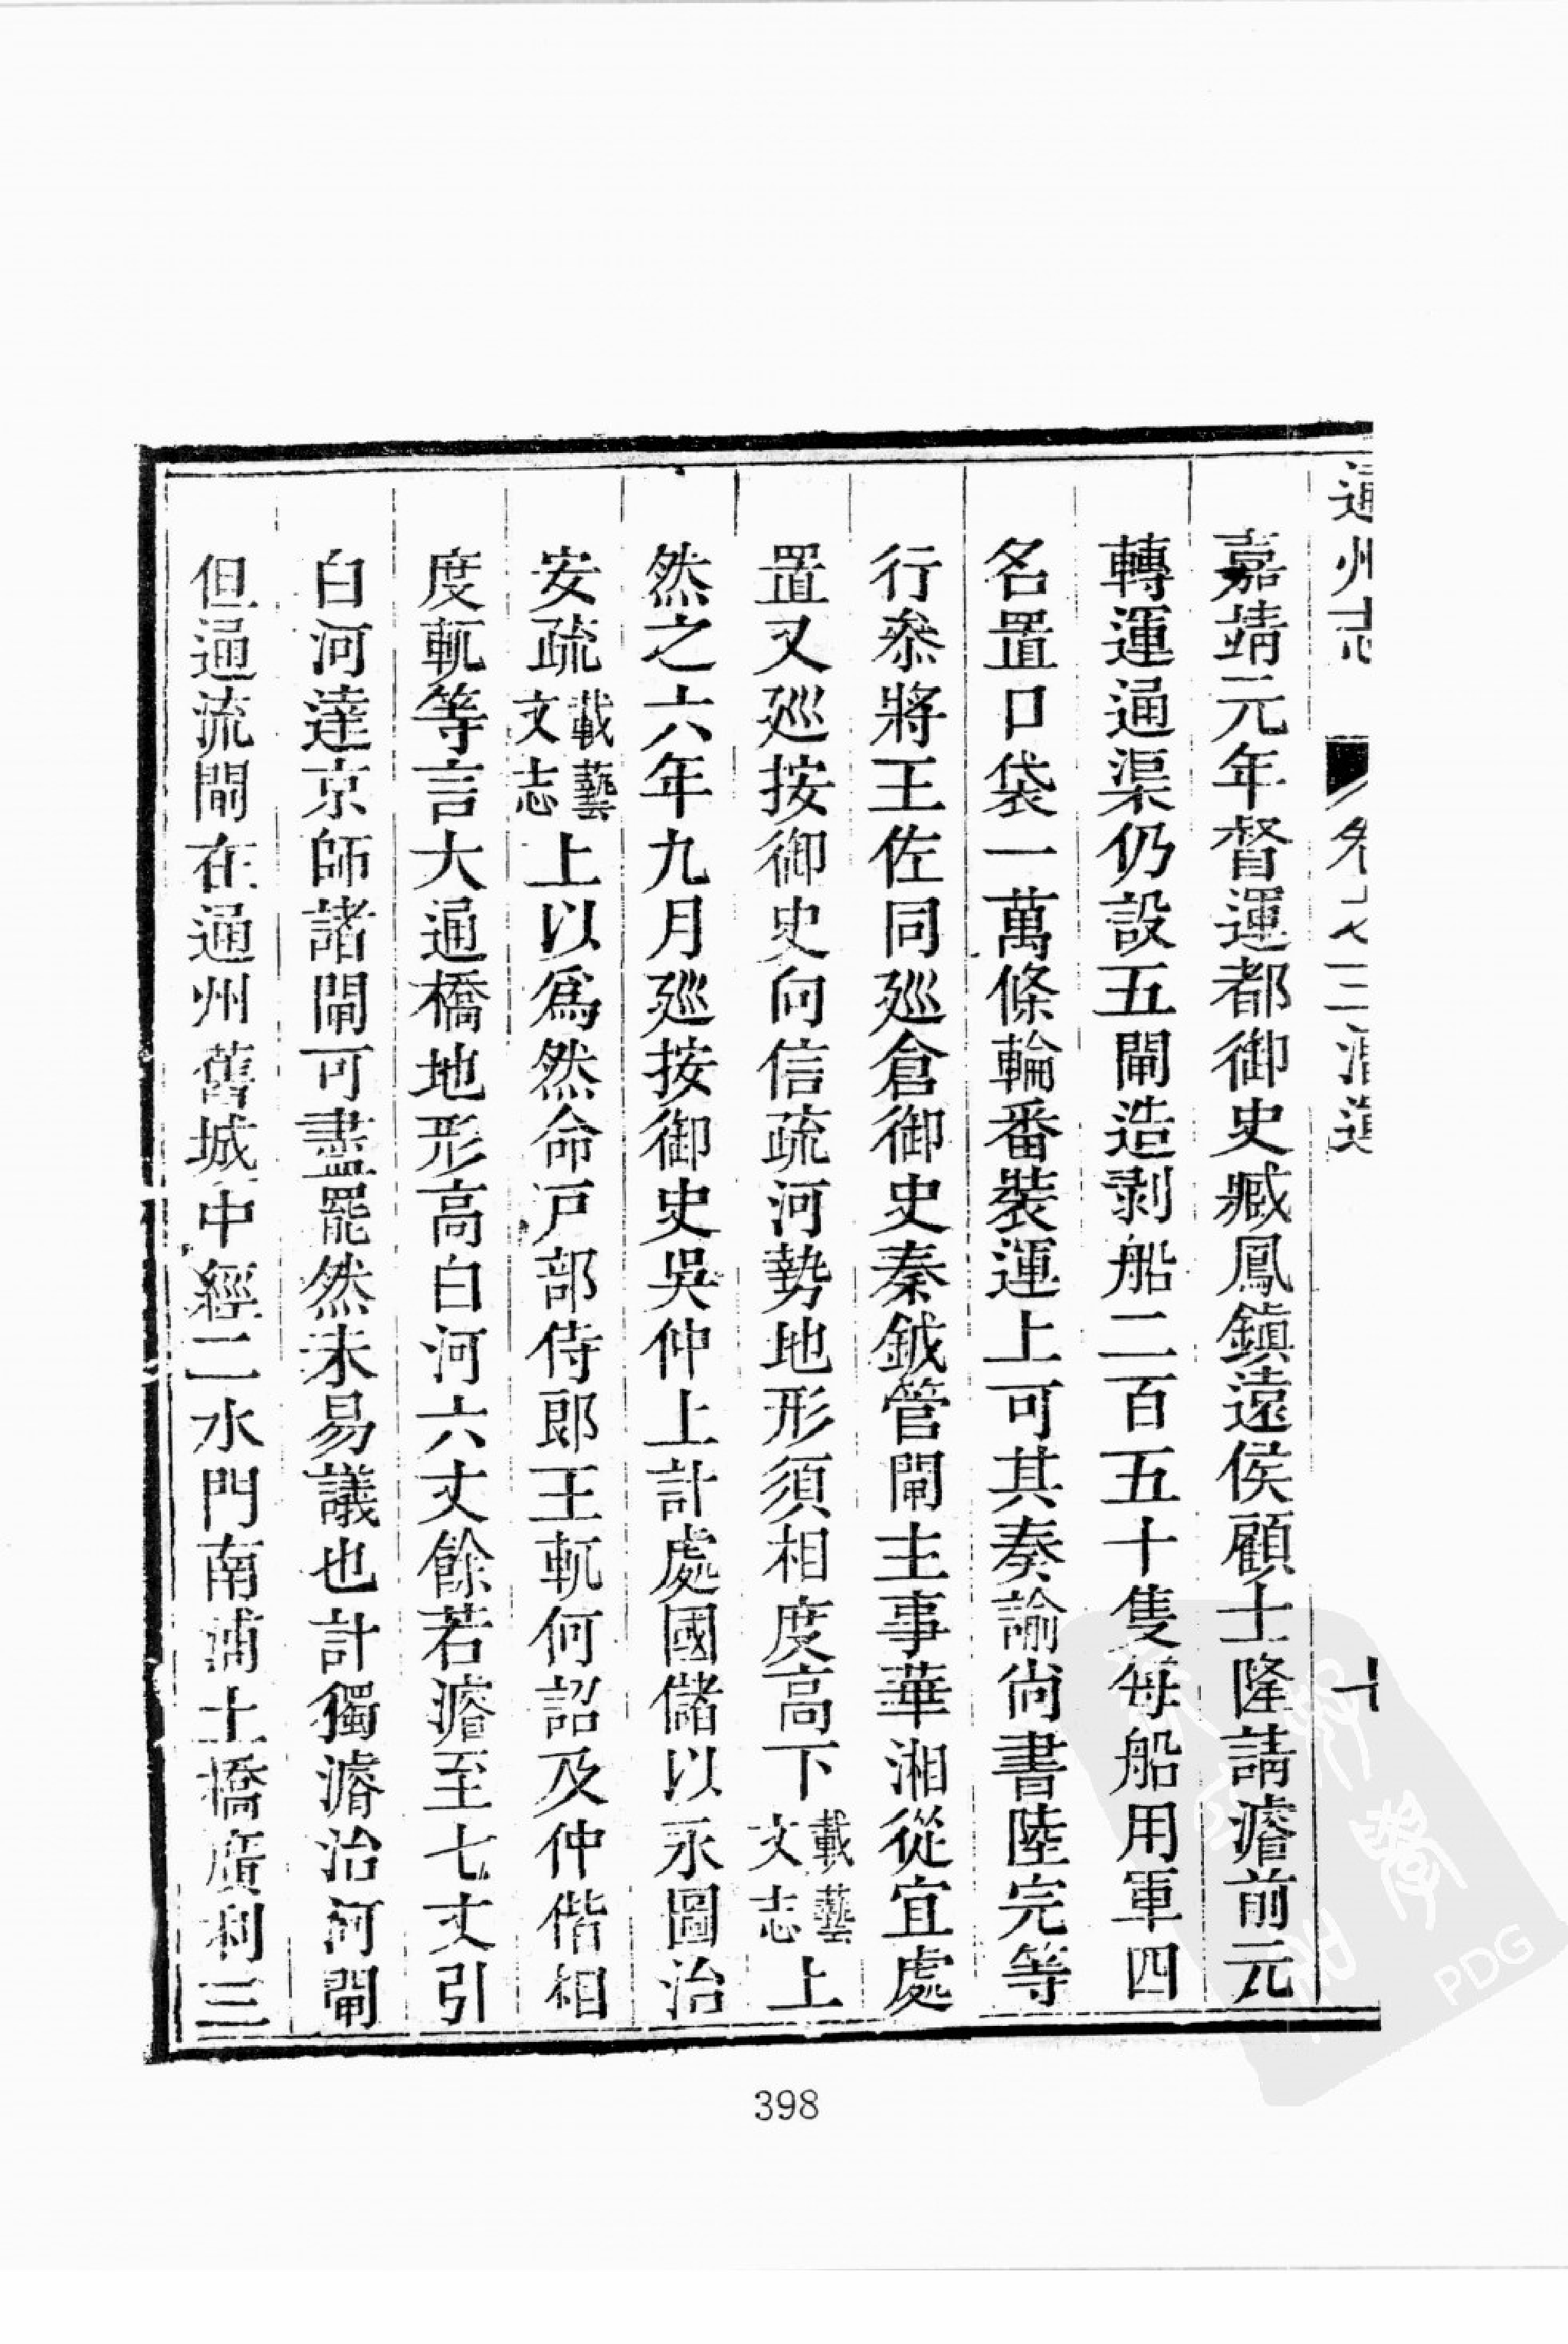 通州志 卷之三漕運 十
嘉靖元年督運都御史臧鳳鎮遠侯顧士隆請濬前元
轉運通渠仍設五閘造剥船二百五十隻每船用軍四
名置口袋一萬條輪番裝運上可其奏諭尚書陸完等
行叅將王佐同廵倉御史秦鉞管閘主事華湘從宜處
置又廵按御史向信疏河勢地形須相度高下載藝文志上
然之六年九月廵按御史吳仲上計處國儲以永圖治
安疏載藝文志上以爲然命戸部侍郎王軏何詔及仲偕相
度軏等言大通橋地形高白河六丈餘若濬至七丈引
白河達京師諸閘可盡罷然未易議也計獨濬治河閘
但通流閘在通州舊城中經二水門南浦土橋廣利三
398
PDG